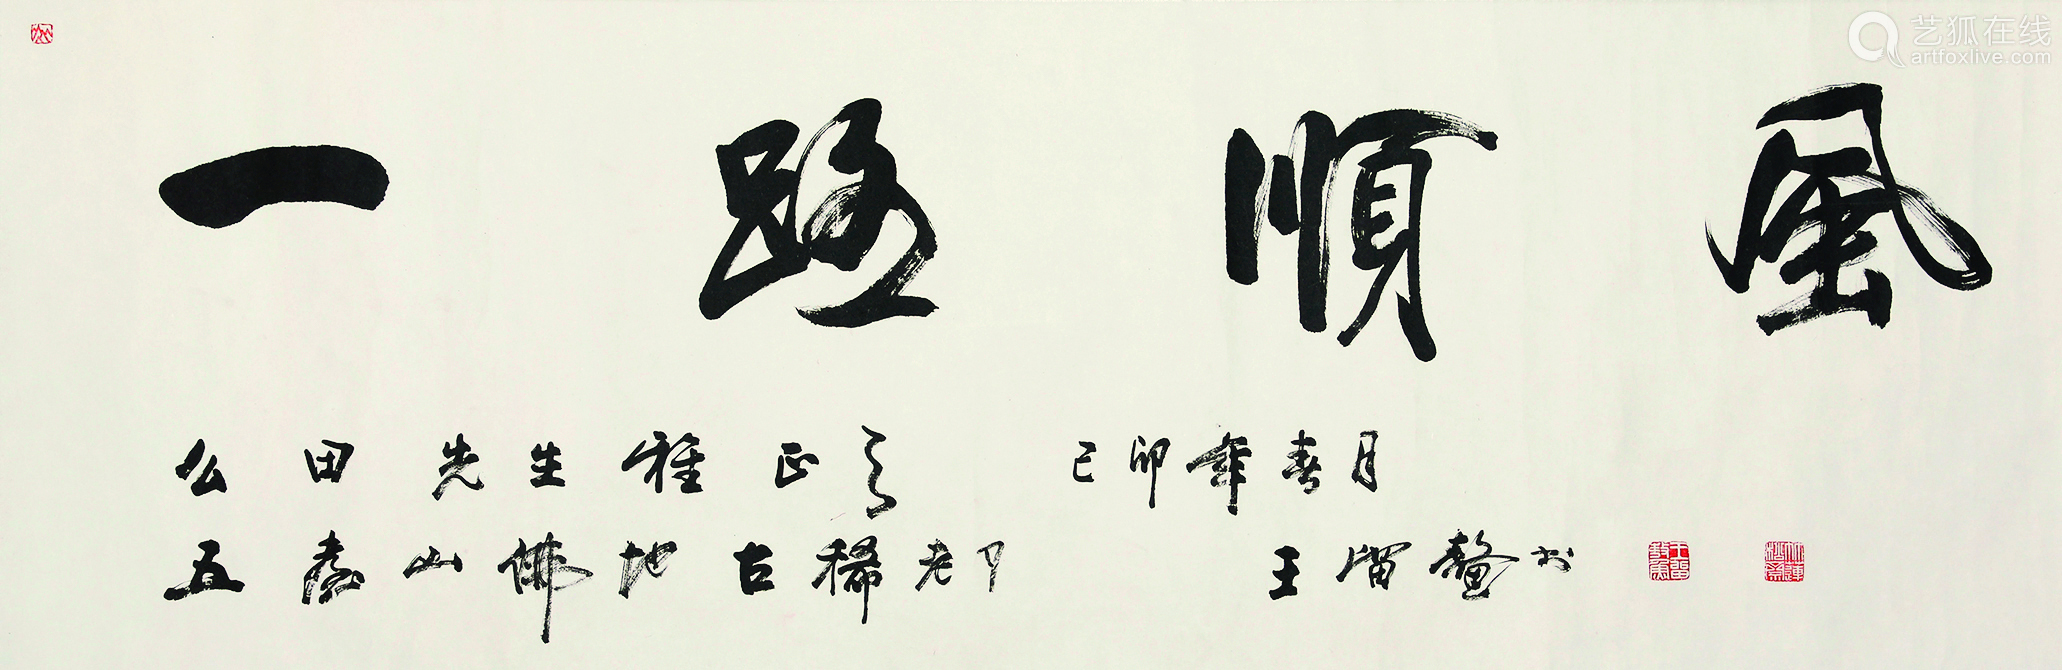 艺狐在线
artfoxlive.com
一路順風
公田先生雅正之 己卯年春月
五臺山佛地古稀老人 王留鳌书